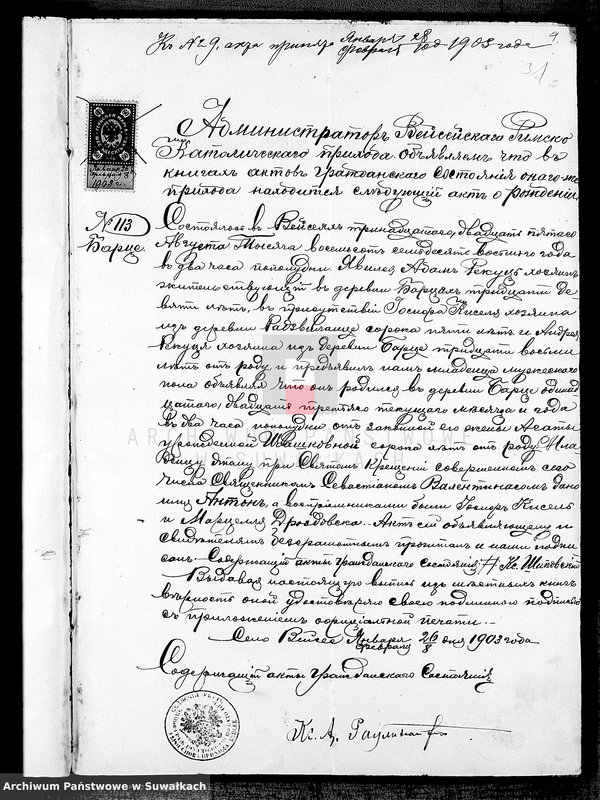 Къ № 9. акта
Января 28
Февраля
1903 года
9.
31
Администраторъ Вейсейскаго Римско
Католическаго прихода объявляетъ что въ
книгахъ актовъ гражданскаго состоянія онаго-же
прихода находится слѣдующій актъ о рожденіи
№ 113
Барце.
Состоялось въ Вейсеяхъ тринадцатаго, двадцать пятаго
Августа Тысяча восемьсотъ семьдесятъ восьмого года
въ два часа пополудни. Явился Адамъ Рекуць хозяинъ
жительствующій въ деревни Барцахъ тридцати де
вяти лѣтъ, въ присутствіи Госифа Киселя хозяина
изъ деревни сорока пяти лѣтъ и Андрея
Рекуця хозяина изъ деревни Барце тридцати восьми
лѣтъ отъ роду, и предъявилъ намъ младенца мужескаго
пола объявляя что онъ родился въ деревни Барце одинад
цатаго, двадцать третьяго текущаго мѣсяца и года
въ два часа пополудни отъ законной его жены Агаты
урожденной Ивашковной сорока лѣтъ отъ роду. Мла
денцу этому при Святомъ Крещеніи совершенномъ сего
числа Священникомъ Севастіаномъ Валентинасомъ дано
имя Антонъ, а воспріемниками были Госифъ Кисель
и Марцеля Дроздовска. Актъ сей объявляющему и
свидѣтелямъ безграмотнымъ прочитанъ и нами подпи
санъ. Содержащій акты гражданскаго состоянія Кс.
Выдавая настоящую выпись изъ книгъ
вѣрность оной удостовѣряю своею подписью
съ приложеніемъ печати.
Село Вейсее Января 26 дня 1903 года
Февраля 8
Содержащій акты Гражданскаго Состоянія
Кс. А.
ARCHIWUM PAŃSTWOWE
W SUWAŁKACH
Archiwum Państwowe w Suwałkach